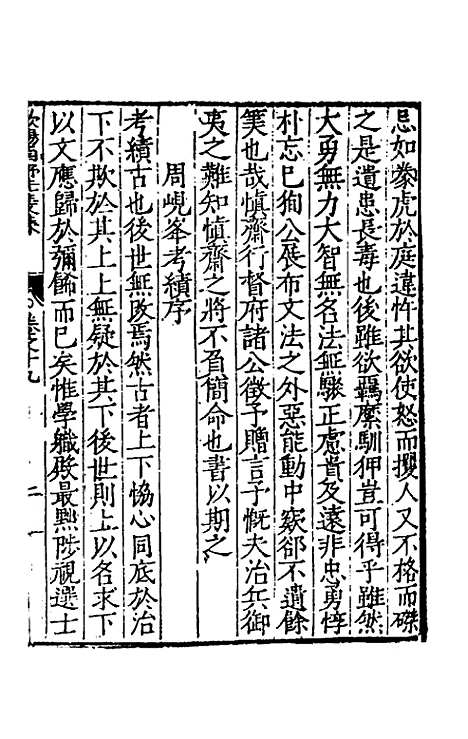 忌如豢虎於庭違忤其欲使怒而攫人又不格而磔
之是遺患長毒也後雖欲羈縻馴狎豈可得乎雖然
大勇無力大智無名法無驟正慮貴及遠非忠勇惇
朴忘已狥公展布文法之外惡能動中窽郤不遺餘
筭也哉慎齋行督府諸公徵予贈言予慨夫治兵御
夷之難知慎齋之將不負簡命也書以期之
周峴峯考績序
考績古也後世無墜焉然古者上下恊心同底於治
下不欺於其上上無疑於其下後世則上以名求下
以文應歸於彌飾而已矣惟學軄殿最黜陟視選士
卷之十九